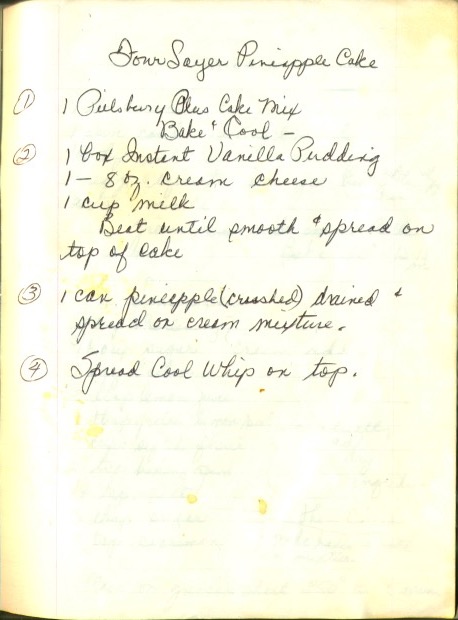 Four Layer Pineapple Cake
① 1 Pillsbury Plus Cake Mix
Bake & Cool -
② 1 box Instant Vanilla Pudding
1 - 8 oz. cream cheese
1 cup milk
Beat until smooth & spread on
top of cake
③ 1 can pineapple (crushed) drained &
spread on cream mixture.
④ Spread Cool Whip on top.